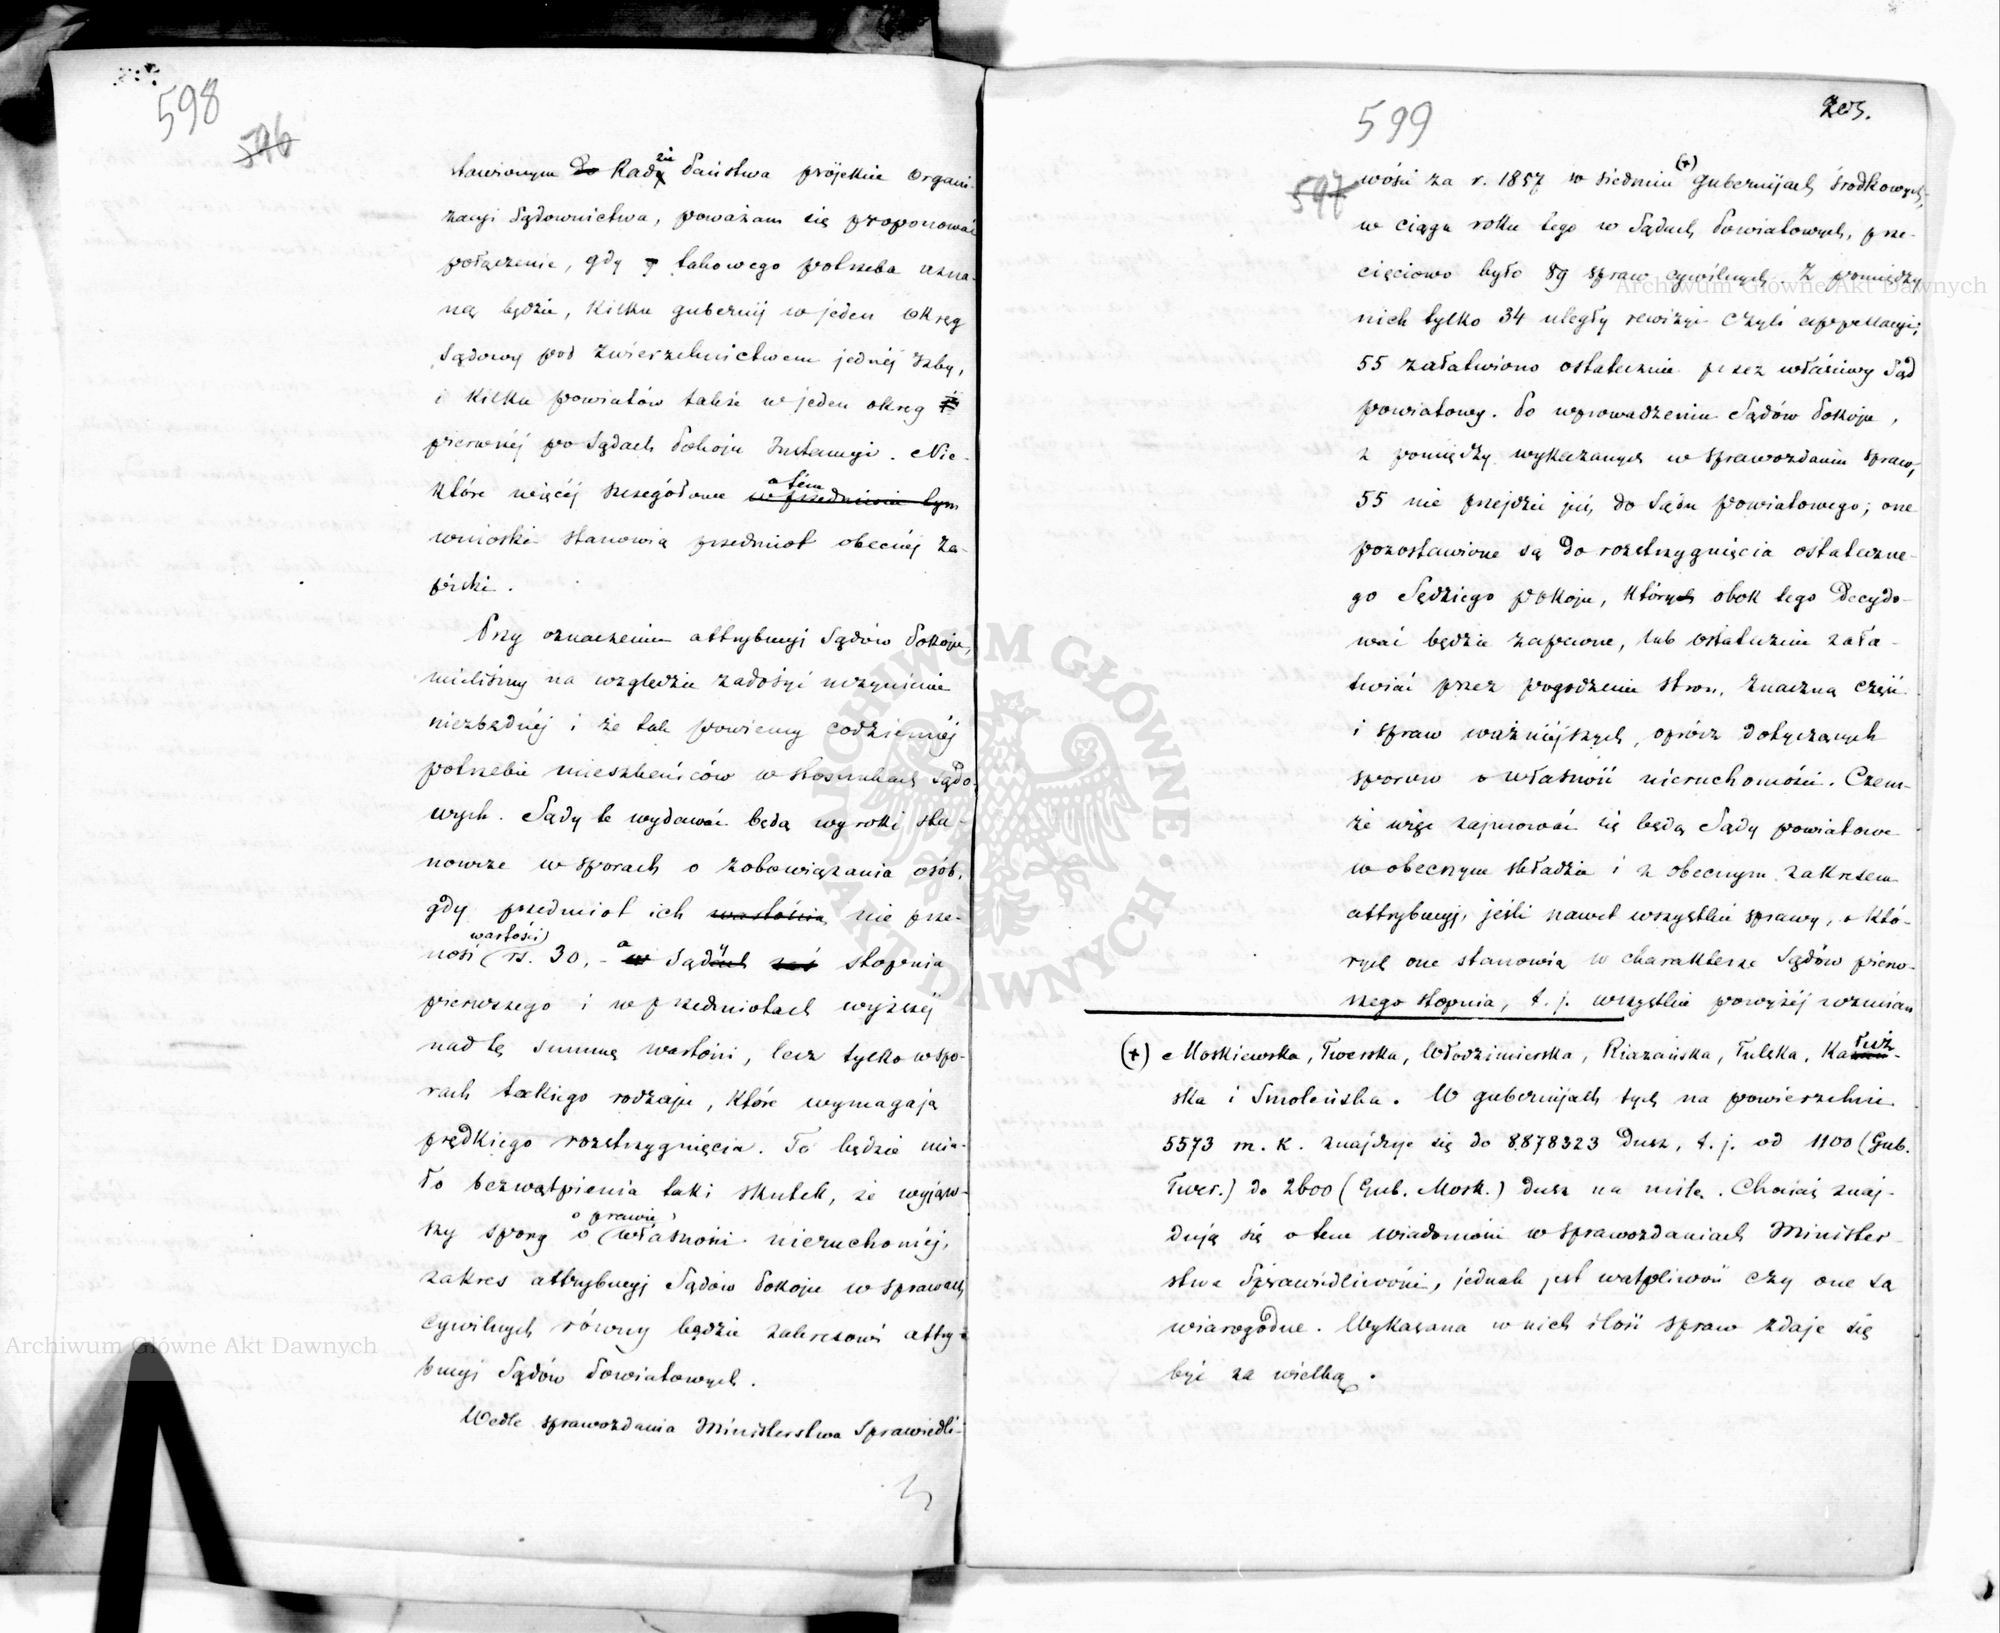 598
546
stawionym do Radzie Państwa projekcie Organi-
zacyi Sądownictwa, poważam się proponować
połączenie, gdy takowego potrzeba uzna-
ną będzie, kilku gubernij w jeden okręg
Sądowy pod zwierzchnictwem jednéj Izby,
i kilku powiatów także w jeden okręg
pierwnéj po Sądach Pokoju Instancyi. Nie-
które więcéj szczegółowe w przedmiocie tym o tém
wnioski stanowią przedmiot obecnéj za-
piski.
Przy oznaczeniu attrybucyj Sądów Pokoju,
mieliśmy na względzie zadosyć uczynienie
niezbędnéj i że tak powiemy codziennéj
potrzebie mieszkańców w stosunkach Sądo-
wych. Sądy te wydawać będą wyroki sta-
nowcze w sporach o zobowiązania osób,
gdy przedmiot ich wartością nie prze-
nosi (wartości) rs. 30, - a w Sądach y zaś stopnia
pierwszego i w przedmiotach wyższéj
nad tę summę wartości, lecz tylko w spo-
rach takiego rodzaju, które wymagają
prędkiego rozstrzygnięcia. To będzie mia-
ło bezwątpienia taki skutek, że wyjąw-
szy spory o (o prawie) własności nieruchoméj,
zakres attrybucyj Sądów Pokoju w sprawach
cywilnych równy będzie zakresowi attry-
bucyj Sądów Powiatowych.
Wedle sprawozdania Ministerstwa Sprawiedli-
599
203.
597
wości za r. 1857 w siedmiu (+) gubernijach środkowych,
w ciągu roku tego w Sądach Powiatowych, prze-
cięciowo było 89 spraw cywilnych. Z pomiędzy
nich tylko 34 uległy rewizyi czyli appellacyi;
55 załatwiono ostatecznie przez właściwy Sąd
powiatowy. Po wprowadzeniu Sądów Pokoju,
z pomiędzy wykazanych w sprawozdaniu spraw,
55 nie przejdzie już do Sądu powiatowego; one
pozostawione są do rozstrzygnięcia ostateczne-
go Sędziego pokoju, których obok tego decydo-
wać będzie zapewne, lub ostatecznie zała-
twiać przez pogodzenie stron, znaczną część
i spraw ważniéjszych, oprócz dotyczących
sporów o własność nieruchomości. Czem-
że więc zajmować się będą Sądy powiatowe
w obecnym składzie i z obecnym zakresem
attrybucyj, jeśli nawet wszystkie sprawy, o któ-
rych one stanowią w charakterze Sądów pierw-
szego stopnia, t. j. wszystkie powyżéj wzmian
(+) Moskiewska, Twerska, Włodzimierska, Riazańska, Tulska, Kałuż-
ska i Smoleńska. W gubernijach tych na powierzchni
5573 m. k. znajduje się do 8878323 dusz, t. j. od 1100 (Gub.
Twer.) do 2600 (Gub. Mosk.) dusz na milę. Chociaż znaj-
dują się o tem wiadomości w sprawozdaniach Minister-
stwa Sprawiedliwości, jednak jest wątpliwość czy one są
wiarogodne. Wykazana w nich ilość spraw zdaje się
być za wielką.
Archiwum Główne Akt Dawnych
Archiwum Główne Akt Dawnych
ARCHIWUM GŁÓWNE AKT DAWNYCH